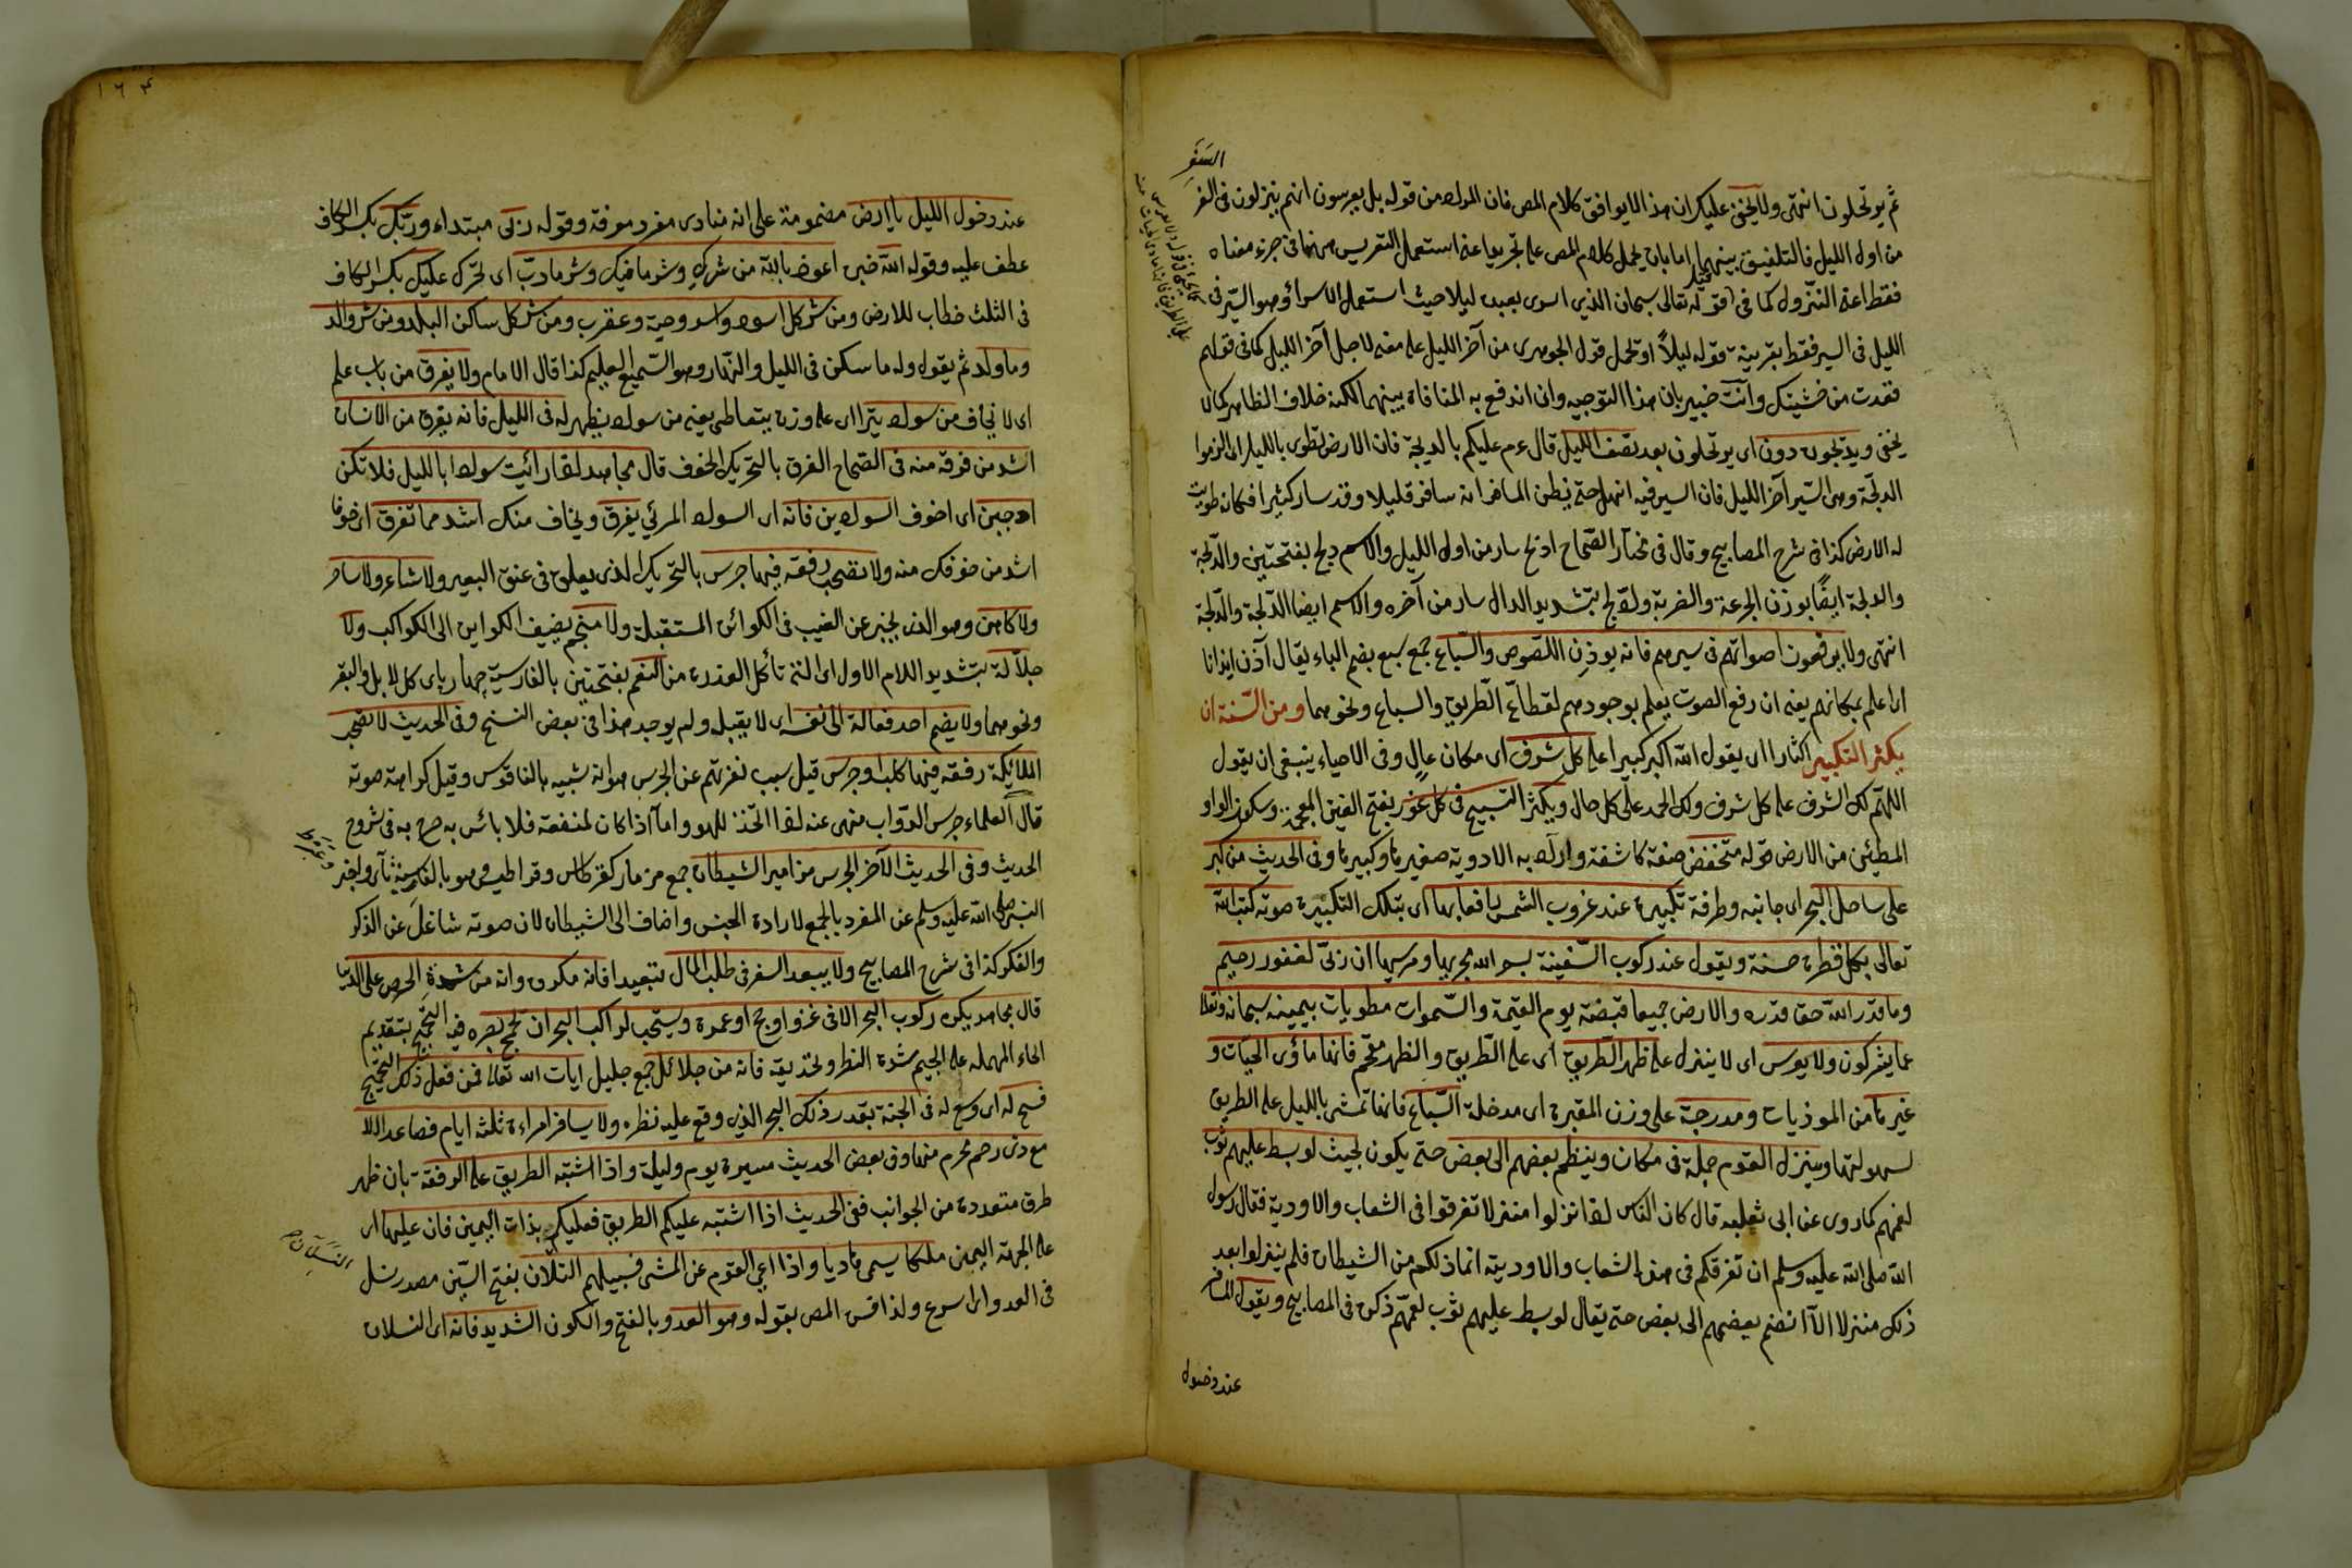 السَفَرِ
ثم يرتحلون انتهى ولا يخفى عليك ان هذا لا يوافق كلام المص فان المراد من قوله بل يعرسون انهم ينزلون فى السفر
من اول الليل فالتلفيق بينهما اما بان يحمل كلام المص على تجريد استعمل التعريس ههنا فى جزء معناه
فقط اعنى النزول كما فى قوله تعالى سبحان الذي اسرى بعبده ليلا حيث استعمل الاسراء وهو السير فى
الليل فى السير فقط بقرينة قوله ليلاً او تحمل قول الجوهرى من آخر الليل على معنى لاجل آخر الليل كما فى قولهم
قعدت من خشيتك وانت خبير بان هذا التوجيه وان اندفع به المنافاة بينهما لكنه خلاف الظاهر كما لا
يخفى ويدلجون دون اى يرتحلون بعد نصف الليل قال ءم عليكم بالدلجة فان الارض تطوى بالليل اى الزموا
الدلجة وهى السير آخر الليل فان السير فيه اسهل حتى يظن المسافر انه سافر قليلا وقد سار كثيرا فكانه طويت
له الارض كذا فى شرح المصابيح وقال فى مختار الصحاح ادلج سار من اول الليل والاسم دلج بفتحتين والدلجة
والدلجة ايضًا بوزن الجرعة والضربة وادّلج بتشديد الدال سار من آخره والاسم ايضا الدلجة والدلجة
انتهى ولا يرفعون اصواتهم فى سيرهم فانه يوذن اللصوص والسباع جمع سبع بضم الباء يقال آذن ايذانا
اى اعلم بمكانهم يعنى ان رفع الصوت يعلم بوجودهم لقطاع الطريق والسباع ونحوهما ومن السنة ان
يكثر التكبير اكثارا اى يقول الله اكبر كبيرا على كل شرف اى مكان عالٍ وفى الاحياء ينبغى ان يقول
اللهم لك الشرف على كل شرف ولك الحمد على كل حال ويكثر التسبيح فى كل غور بفتح الغين المعجمة وسكون الواو
المطمئن من الارض قوله منخفض صفة كاشفة واراد به الاودية صغيرها وكبيرها وفى الحديث من كبر
على ساحل البحر اى جانبه وطرفه تكبيرة عند غروب الشمس رافعا بها اى بتلك التكبيرة صوته كتب الله
تعالى بكل قطرة حسنة ويقول عند ركوب السفينة بسم الله مجريها ومرسيها ان ربى لغفور رحيم
وما قدر الله حق قدره والارض جميعا قبضته يوم القيمة والسموات مطويات بيمينه سبحانه وتعالى
عما يشركون ولا يعرس اى لا ينزل على ظهر الطريق اى على الطريق والظهر مقحم فانها مأوى الحيات و
غيرها من الموذيات ومدرجة على وزن المقبرة اى مدخلة السباع فانها تمشى بالليل على الطريق
لسهولتها وينزل القوم جملة فى مكان وينظم بعضهم الى بعض حتى يكون بحيث لو بسط عليهم ثوب
لعمهم كما روى عن ابى ثعلبه قال كان الناس اذا نزلوا منزلا تفرقوا فى الشعاب والاودية فقال رسول
الله صلى الله عليه وسلم ان تفرقكم فى هذه الشعاب والاودية انما ذلكم من الشيطان فلم ينزلوا بعد
ذلك منزلا الا انضم بعضهم الى بعض حتى يقال لو بسط عليهم ثوب لعمهم ذكره فى المصابيح ويقول المسافر
عند دخول
١٦٤
عند دخول الليل يا ارض مضمومة على انه منادى مفرد معرفة وقوله ربى مبتداء وربك بكسر الكاف
عطف عليه وقوله الله خبره اعوذ بالله من شرك وشر ما فيك وشر ما دبّ اى تحرك عليك بكسر الكاف
فى الثلث خطاب للارض ومن شر كل اسود واسد وحية وعقرب ومن شر كل ساكن البلد ومن شر والد
وما ولد ثم يقول وله ما سكن فى الليل والنهار وهو السميع العليم كذا قال الامام ولا يفرق من باب علم
اى لا يخاف من سواد يترااى على وزن يتعاطى يعنى من سواد يظهر له فى الليل فانه يفرق من الانسان
اشد من فرقه منه فى الصحاح الفرق بالتحريك الخوف قال مجاهد اذا رأيت سوادا بالليل فلا تكن
اجبن اى اخوف السوادين فانه اى السواد المرئي يفرق ويخاف منك اشد مما تفرق اى خوفا
اشد من خوفك منه ولا تصحب رفقه فيها جرس بالتحريك الذى يعلق فى عنق البعير ولا شاعر ولا ساحر
ولا كاهن وهو الذى يخبر عن الغيب فى الكوائن المستقبلة ولا منجم يضيف الكوائن الى الكواكب ولا
جلالة بتشديد اللام الاول اى التى تأكل العذرة من النعم بفتحتين بالفارسية چهار پاى كالابل والبقر
ونحوهما ولا يضم احد فعالة الى نفسه اى لا يقبله ولم يوجد هذا فى بعض النسخ وفى الحديث لا تصحب
الملائكة رفقه فيها كلب او جرس قيل سبب نفرتهم عن الجرس هو انه شبيه بالناقوس وقيل كراهة صوته
قال العلماء جرس الدواب منهى عنه اذا اتخذ للهو واما اذا كان لمنفعة فلا بأس به صرح به فى شروح
الحديث وفى الحديث الآخر الجرس مزامير الشيطان جمع مزمار كقرطاس وقراطيس وهو بالفارسية ناى واخبر
النبى صلى الله عليه وسلم عن المفرد بالجمع لارادة الجنس واضاف الى الشيطان لان صوته شاغل عن الذكر
والفكر كذا فى شرح المصابيح ولا يبعد السفر فى طلب المال تبعيدا فانه مكروه وانه من شدة الحرص على الدنيا
قال مجاهد يكره ركوب البحر الا فى غزو او حج او عمرة ويستحب لراكب البحر ان يحجج بصره فيه التحجيج بتقديم
الحاء المهمله على الجيم شدة النظر وتحديقه فانه من جلائل جمع جليل ايات الله تعالى فمن فعل ذلك التحجيج
فسح له اى وسع له فى الجنة بقدر ذلك البحر الذى وقع عليه نظره ولا يسافر امراءة ثلثه ايام فصاعدا الا
مع ذى رحم محرم منها وفى بعض الحديث مسيرة يوم وليلة واذا اشتبه الطريق على الرفقة بان ظهر
طرق متعددة من الجوانب ففى الحديث اذا اشتبه عليكم الطريق فعليكم بذات اليمين فان عليها اى
على الجهة اليمين ملكا يسمى هاديا واذا اعيى القوم عن المشى فسبيلهم النسلان بفتح السين مصدر نسل
فى العدو اى اسرع ولذا فسر المص بقوله وهو العدو بالفتح والسكون الشديد فانه اى النسلان